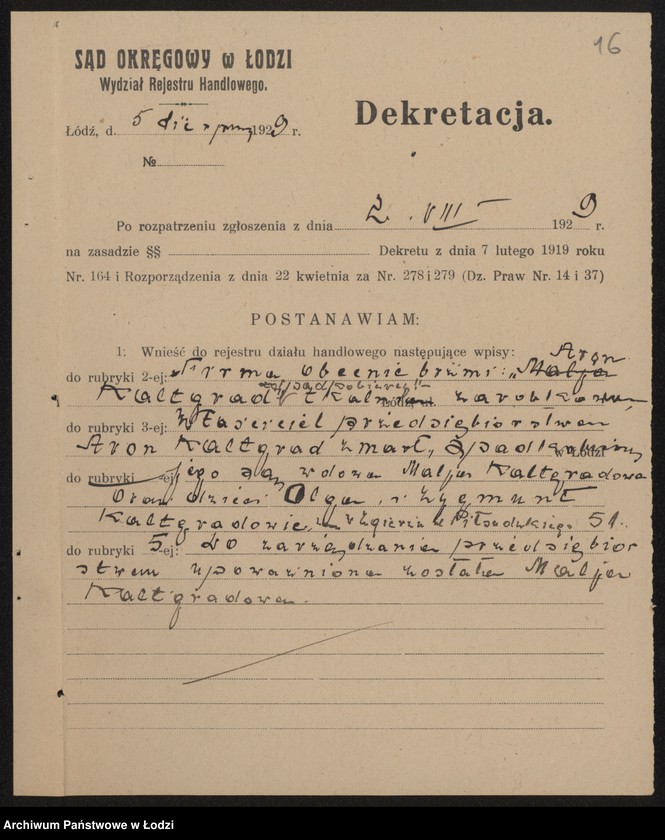 16
SĄD OKRĘGOWY w ŁODZI
Wydział Rejestru Handlowego.
Dekretacja.
Łódź, d. 5 sierpnia 1929 r.
№
Po rozpatrzeniu zgłoszenia z dnia 2. VIII 1929 r.
na zasadzie §§ Dekretu z dnia 7 lutego 1919 roku
Nr. 164 i Rozporządzenia z dnia 22 kwietnia za Nr. 278 i 279 (Dz. Praw Nr. 14 i 37)
POSTANAWIAM:
1. Wnieść do rejestru działu handlowego następujące wpisy: Aron
do rubryki 2-ej: Firma obecnie brzmi: „Malja
Kaltgrad spadkobiercy" tkalnia zarobkowa
do rubryki 3-ej: Właściciel przedsiębiorstwa
Aron Kaltgrad zmarł, Spadkobiercy w Łodzi
do rubryki -ej: jego są, wdowa Malja Kaltgradowa
oraz dzieci Olga, i Zygmunt
Kaltgradowie, w Zgierzu Piłsudskiego 51.
do rubryki 5-ej: Do zarządzania przedsiębior
stwem upoważniona została Malja
Kaltgradowa.
Archiwum Państwowe w Łodzi